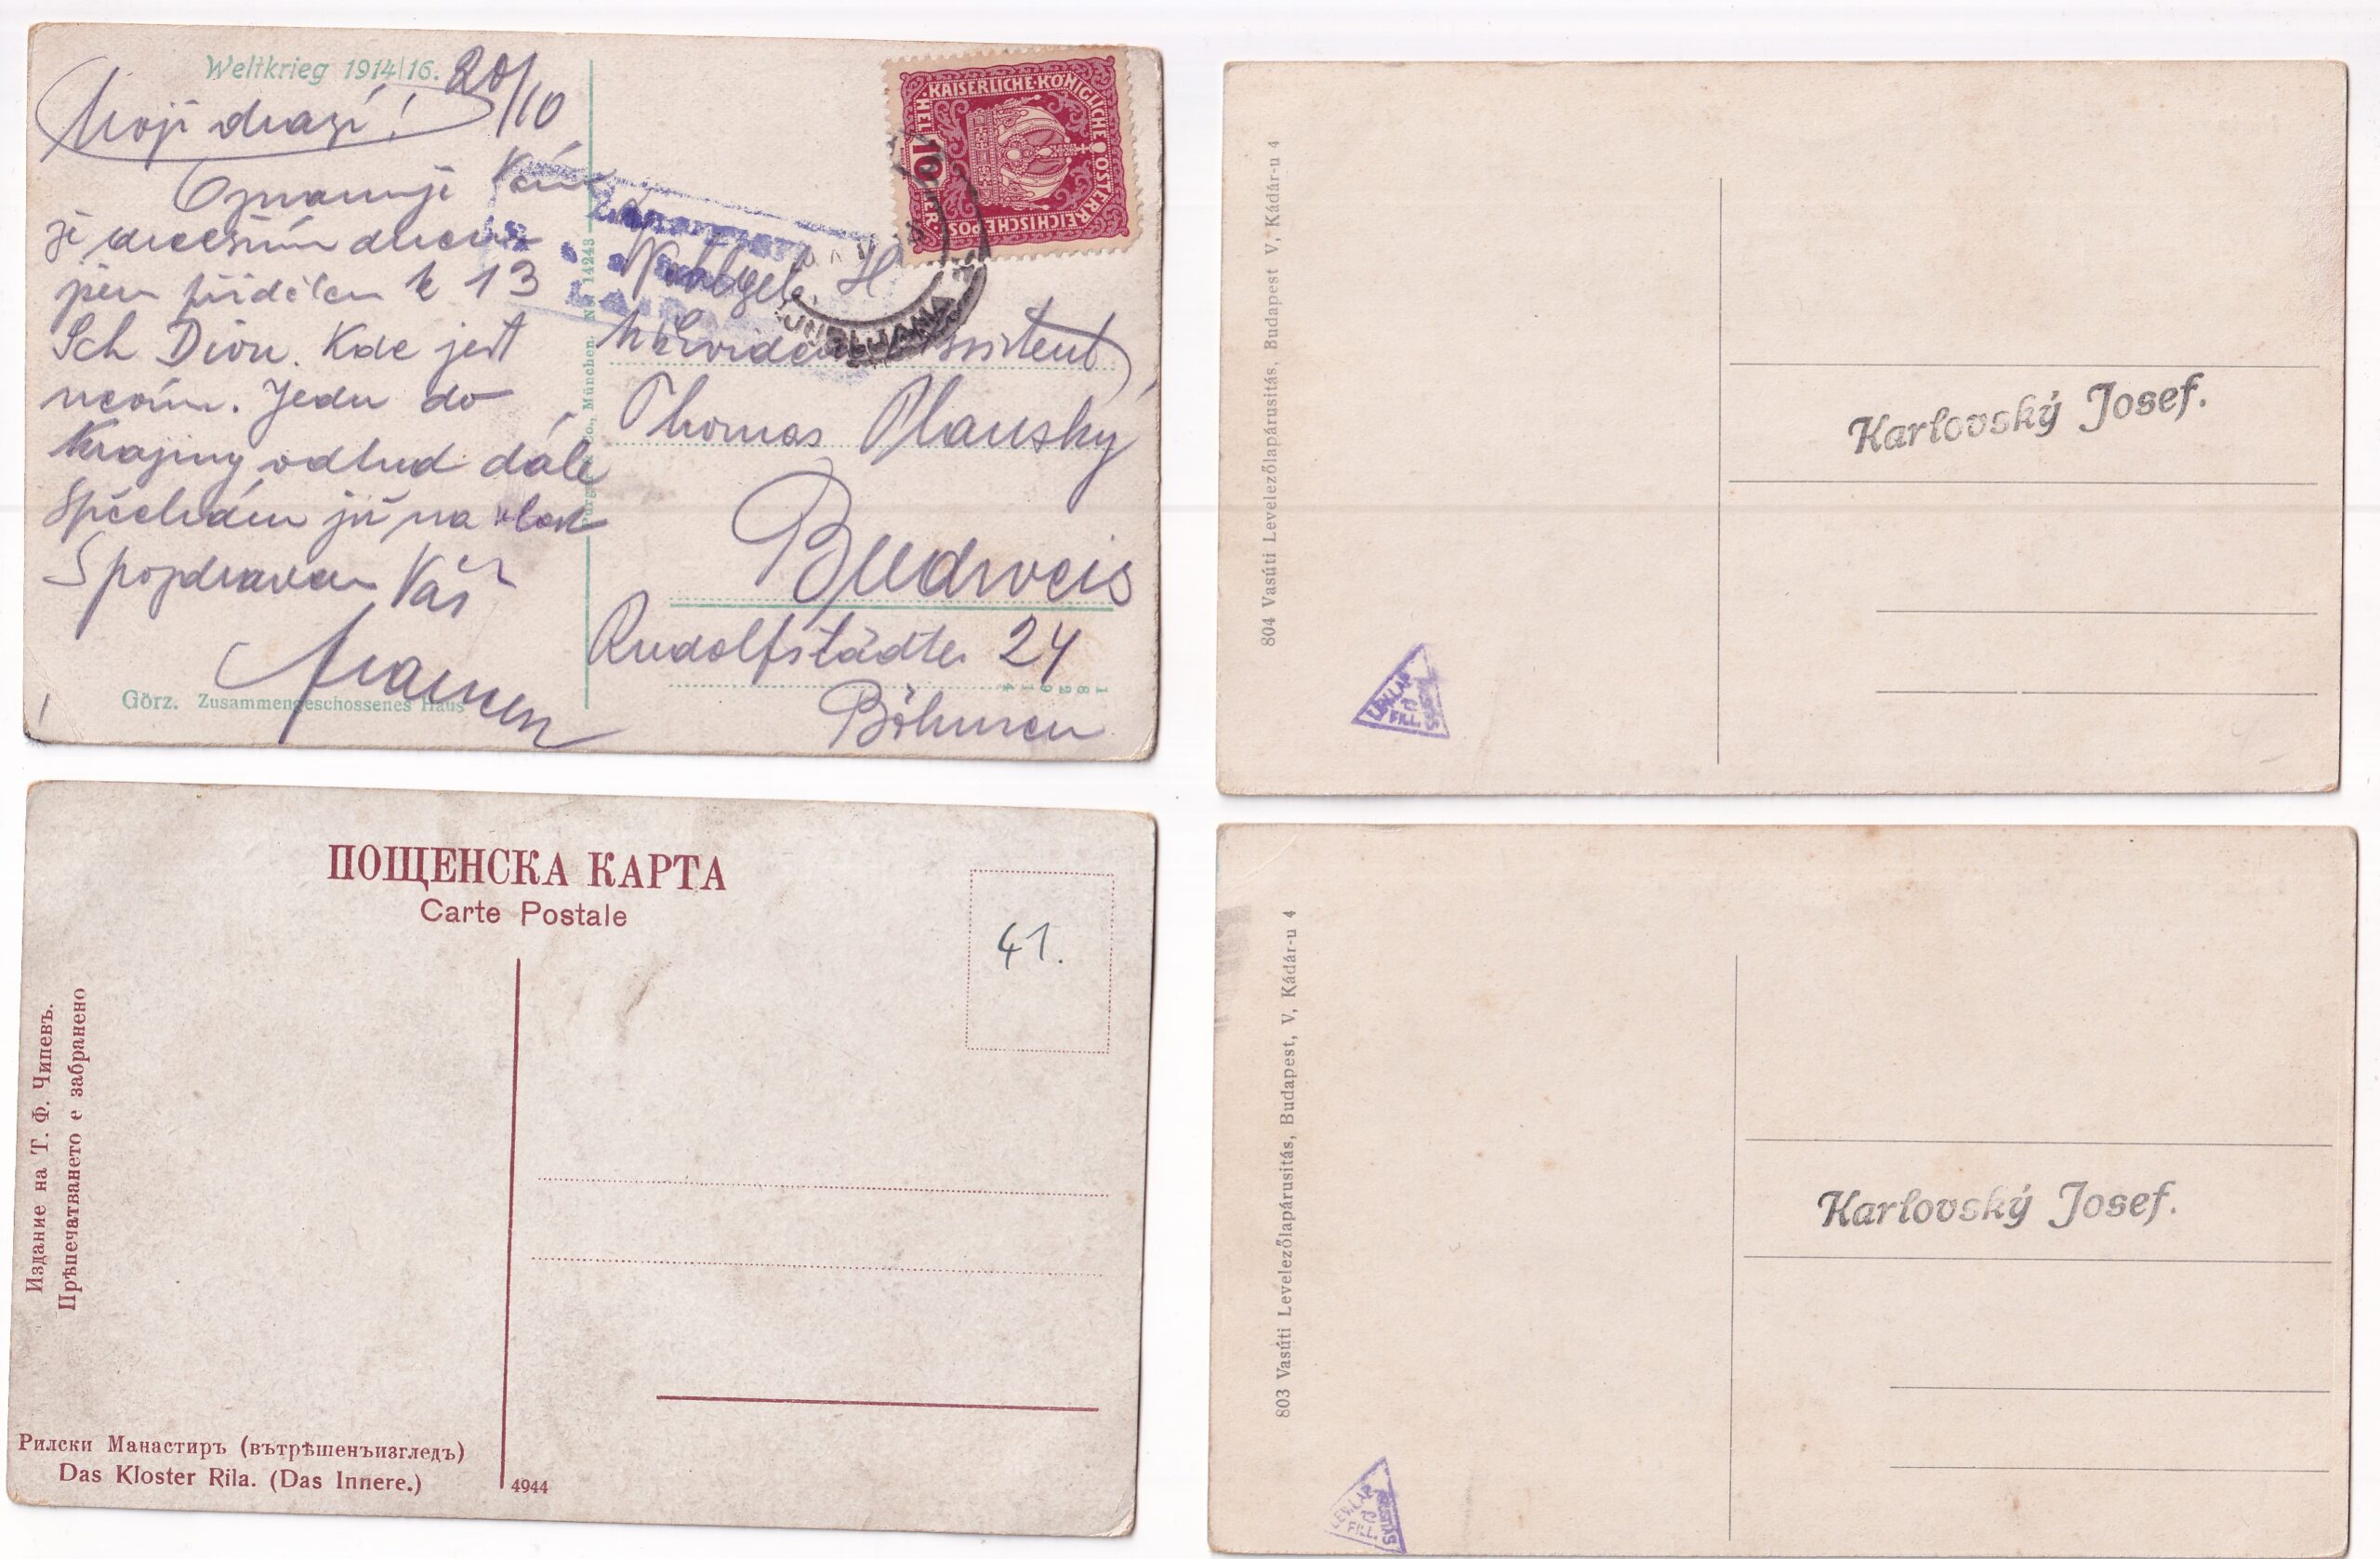 Weltkrieg 1914/16.
20/10
Moji drazí!
Oznamuji Vám
že dnešním dnem
jsem přidělen k 13
Sch Dion. Kde jest
nevím. Jedu do
Krajiny odtud dále
Spěchám již na vlak
S pozdravem Váš
Görz. Zusammengeschossenes Haus
Purger & Co., München. No. 14243
KAISERLICHE KÖNIGLICHE ÖSTERREICHISCHE POST
10 HELLER
Zensuriert
LJUBLJANA
Wohlgeb. H
Assistent
Thomas Plansky
Budweis
Rudolfstädter 24
Böhmen
804 Vasúti Levelezőlapárusitás, Budapest V, Kádár-u 4
Karlovský Josef.
LEV.LAP
12
FILL.
ПОЩЕНСКА КАРТА
Carte Postale
41.
Издание на Т. Ф. Чипевъ.
Прѣпечатването е забранено
Рилски Манастиръ (вътрѣшенъизгледъ)
Das Kloster Rila. (Das Innere.)
4944
803 Vasúti Levelezőlapárusitás, Budapest, V, Kádár-u 4
Karlovský Josef.
LEV.LAP
12
FILL.